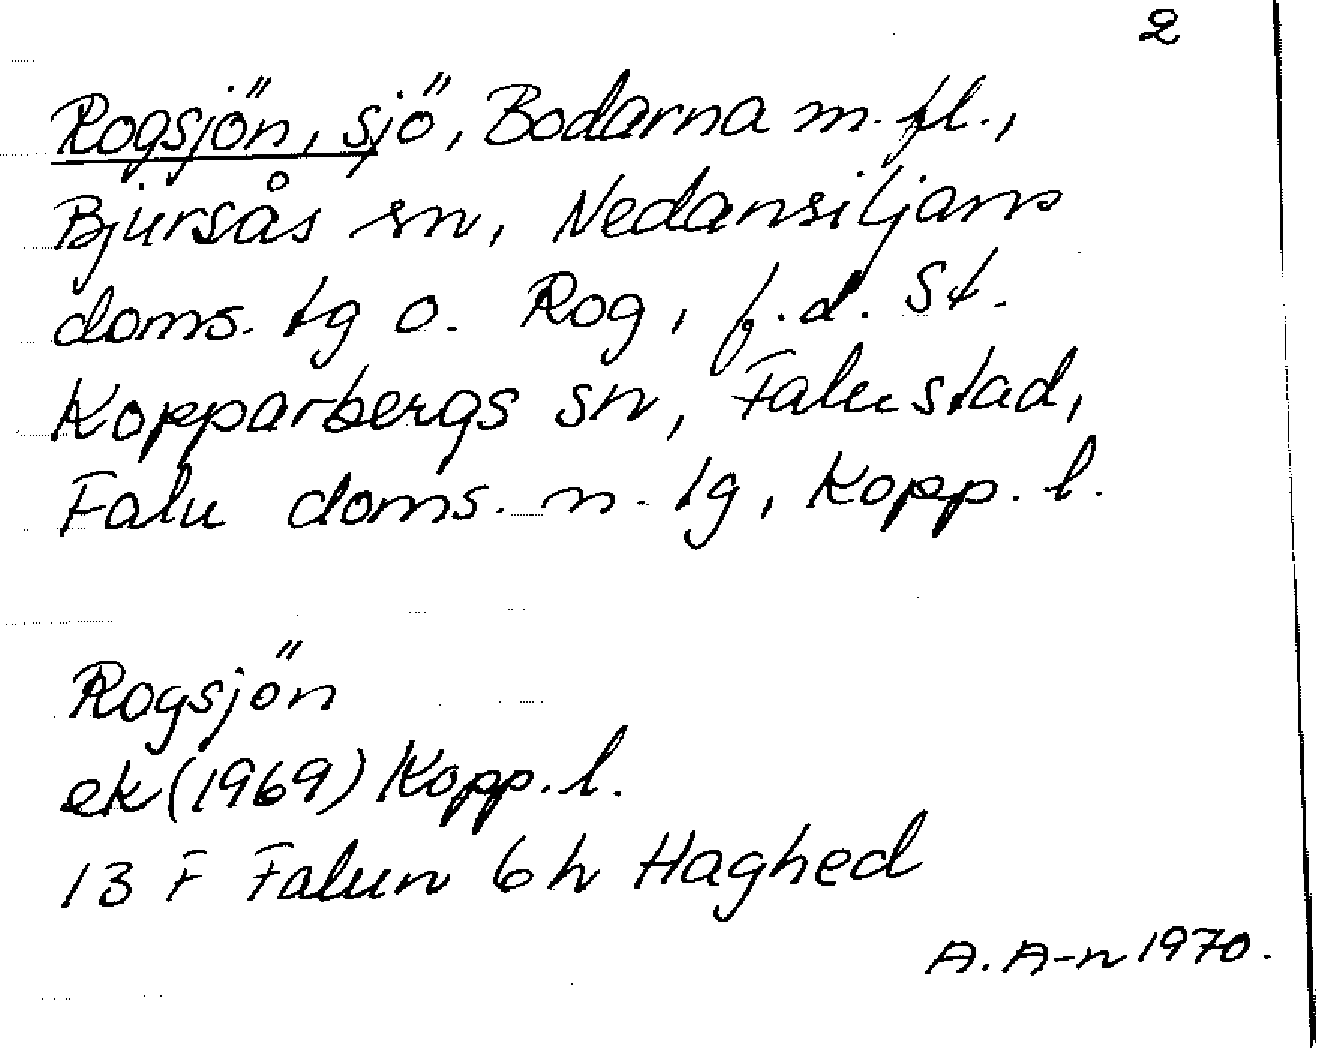 2
Rogsjön, sjö, Bodarna m. fl.,
Bjursås sn, Nedansiljans
doms. tg o. Rog, f.d. St.
Kopparbergs sn, Falu stad,
Falu doms. n. tg, Kopp. l.
Rogsjön
ek (1969) Kopp. l.
13 F Falun 6 h Haghed
A. A-n 1970.